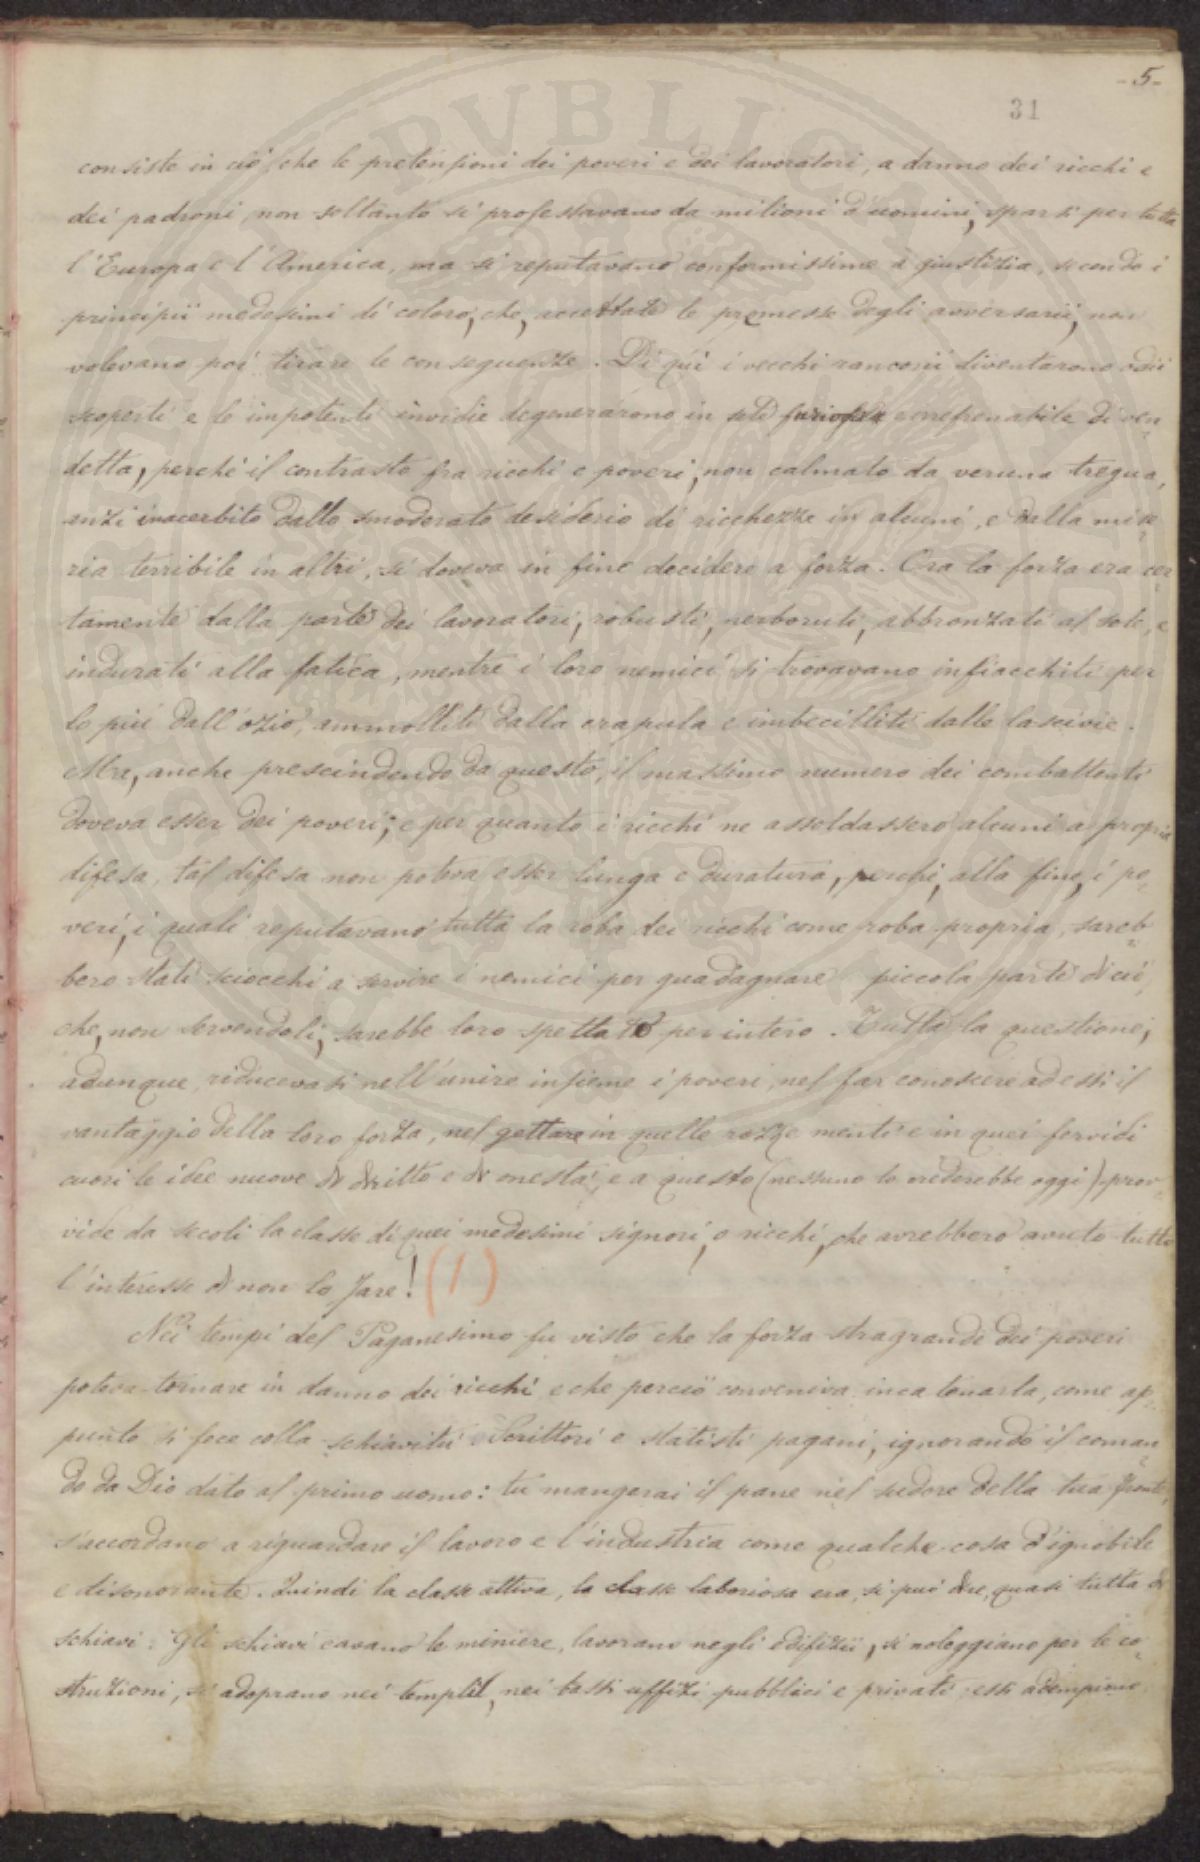 - 5 -
31
consiste in ciò, che le pretensioni dei poveri e dei lavoratori, a danno dei ricchi e
dei padroni, non soltanto si professavano da milioni d'uomini, sparsi per tutta
l'Europa e l'America, ma si reputavano conformissime a giustizia, secondo i
principii medesimi di coloro, che, accettate le premesse degli avversarii, non
volevano poi tirare le conseguenze. Di qui i vecchi rancori diventarono odii
scoperti e le impotenti invidie degenerarono in sete furiosa e irrefrenabile di ven-
detta, perché il contrasto fra ricchi e poveri, non calmato da veruna tregua,
anzi inacerbito dallo smoderato desiderio di ricchezze in alcuni, e dalla mise-
ria terribile in altri, si doveva in fine decidere a forza. Ora la forza era cer-
tamente dalla parte dei lavoratori, robusti, nerboruti, abbronzati al sole, e
indurati alla fatica, mentre i loro nemici si trovavano infiacchiti per
lo più dall'ozio, ammolliti dalla crapula e imbecilliti dalle lascivie.
Ma, anche prescindendo da questo, il massimo numero dei combattenti
doveva esser dei poveri; e per quanto i ricchi ne assoldassero alcuni a propria
difesa, tal difesa non poteva esser lunga e duratura, perché, alla fine, i po-
veri, i quali reputavano tutta la roba dei ricchi come roba propria, sareb-
bero stati sciocchi a servire i nemici per guadagnare piccola parte di ciò,
che, non servendoli, sarebbe loro spettato per intero. Tutta la questione,
adunque, riducevasi nell'unire insieme i poveri, nel far conoscere ad essi il
vantaggio della loro forza, nel gettare in quelle rozze menti e in quei fervidi
cuori le idee nuove di dritto e di onestà, e a questo (nessuno lo crederebbe oggi) prov-
vide da secoli la classe di quei medesimi signori, o ricchi, che avrebbero avuto tutto
l'interesse di non lo fare! (1)
Nei tempi del Paganesimo fu visto che la forza stragrande dei poveri
poteva tornare in danno dei ricchi e che perciò conveniva incatenarla, come ap-
punto si fece colla schiavitù. Scrittori e statisti pagani, ignorando il coman-
do da Dio dato al primo uomo: tu mangerai il pane nel sudore della tua fronte,
s'accordano a riguardare il lavoro e l'industria come qualche cosa d'ignobile
e disonorante. Quindi la classe attiva, la classe laboriosa era, si può dire, quasi tutta di
schiavi. Gli schiavi cavano le miniere, lavorano negli edifizii, si noleggiano per le co-
struzioni, si adoprano nei templi, nei bassi uffizi pubblici e privati; essi adempiono